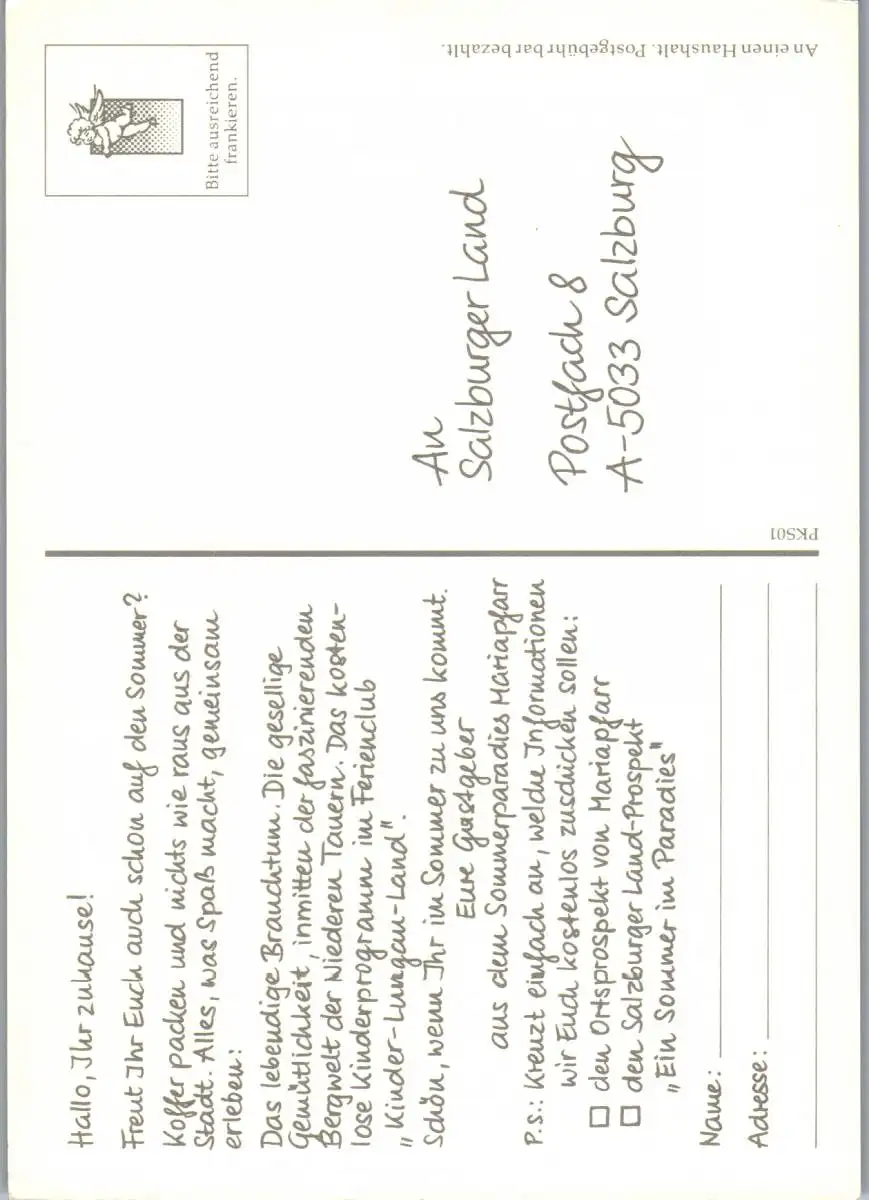 Hallo, Ihr zuhause!
Freut Ihr Euch auch schon auf den Sommer?
Koffer packen und nichts wie raus aus der
Stadt. Alles, was Spaß macht, gemeinsam
erleben:
Das lebendige Brauchtum. Die gesellige
Gemütlichkeit, inmitten der faszinierenden
Bergwelt der Niederen Tauern. Das kosten-
lose Kinderprogramm im Ferienclub
„Kinder-Lungau-Land".
Schön, wenn Ihr im Sommer zu uns kommt.
Eure Gastgeber
aus dem Sommerparadies Mariapfarr
P.S.: Kreuzt einfach an, welche Informationen
wir Euch kostenlos zuschicken sollen:
☐ den Ortsprospekt von Mariapfarr
☐ den Salzburger Land-Prospekt
„Ein Sommer im Paradies"
Name:
Adresse:
PKS01
Bitte ausreichend
frankieren.
An
Salzburger Land
Postfach 8
A-5033 Salzburg
An einen Haushalt. Postgebühr bar bezahlt.